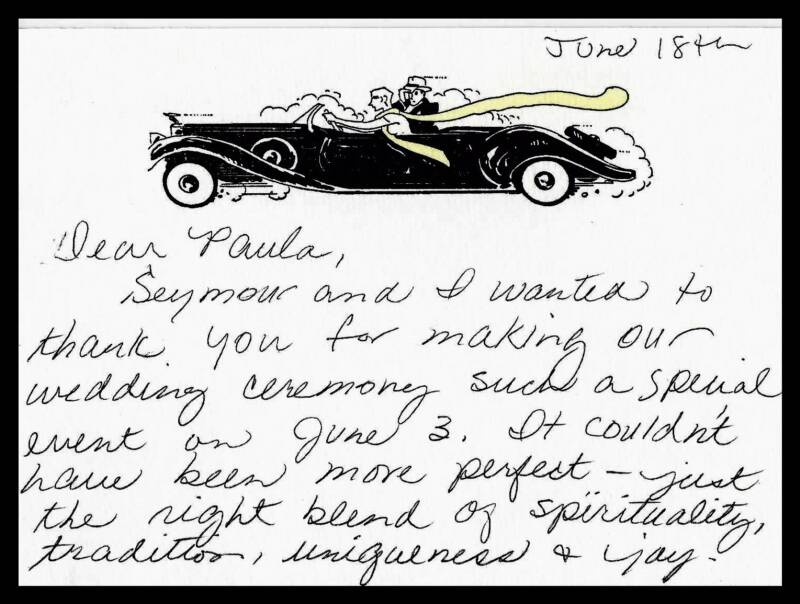 June 18th
Dear Paula,
Seymour and I wanted to
thank you for making our
wedding ceremony such a special
event on June 3. It couldn't
have been more perfect – just
the right blend of spirituality,
tradition, uniqueness & joy.